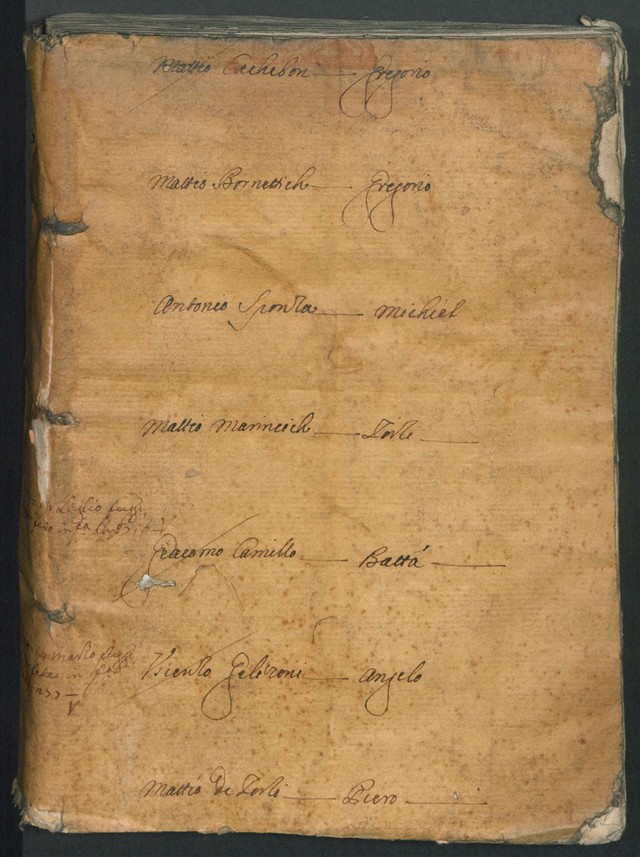 Matteo Cachebon — Gregorio
Mattio Bornettich — Gregorio
Antonio Sponza — Michiel
Mattio Mannicich — Zorli —
Luglio fuggi
Giacomo Camillo — Batta —
Marzo fuggi
Vicenzo Gelironi — Angelo
Mattio De Zorli — Piero —